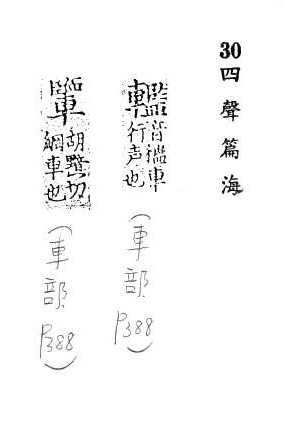 30 四聲篇海
轞 音檻車
行声也
(車部 P388)
胡黤切
綱車也
(車部 P388)